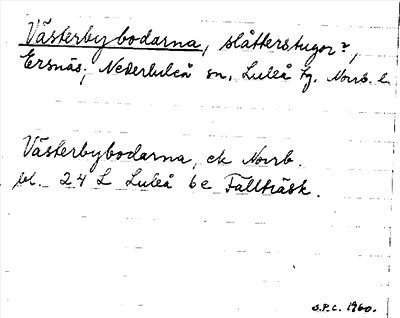 Västerbybodarna, slåtterstugor?,
Ersnäs, Nederluleå sn, Luleå tg. Norrb. l.
Västerbybodarna, ek Norrb.
bl. 24 L Luleå 6e Fallträsk.
S.P.C. 1960.